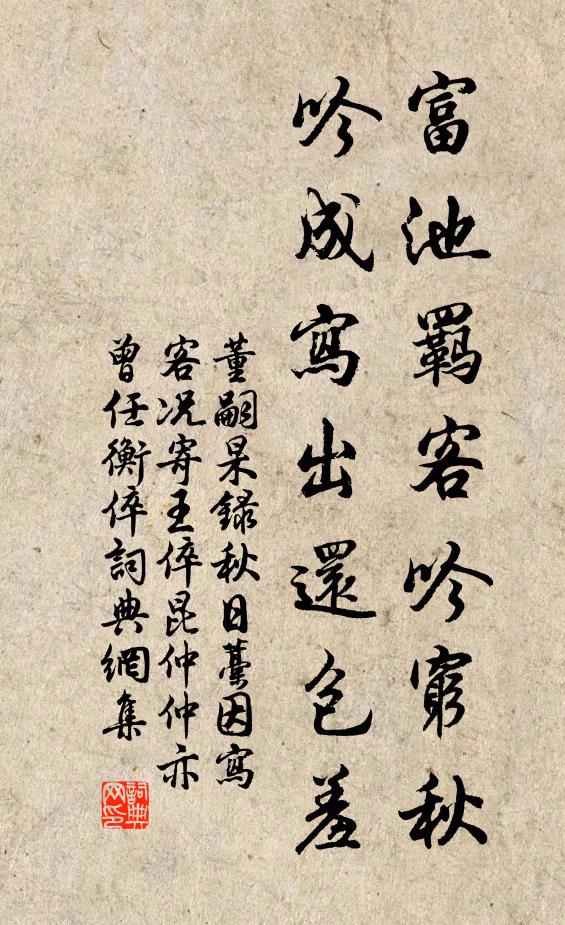 富池羈客吟窮秋
吟成寫出還包羞
董嗣杲錄秋日藁因寫
客况寄王倅昆仲仲亦
曾任衡倅詞典網集
詞典网印